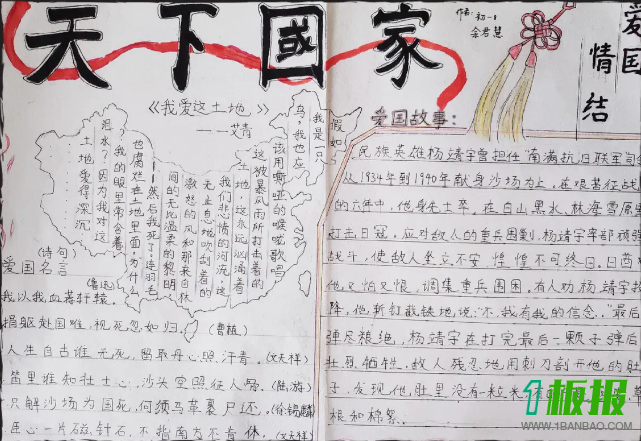 天下國家
作者：初一1
余君慧
爱国
情结
《我爱这土地》
——艾青
假如
我是一只
鸟，我也应
该用嘶哑的喉咙歌唱
这被暴风雨所打击着的
土地，这永远汹涌着
我们悲愤的河流，这
无止息地吹刮着的
激怒的风和那来自林
间的无比温柔的黎明
——然后我死了，连羽毛
也腐烂在土地里面。为什么
？我的眼里常含着
泪水？因为我对这
土地爱得深沉
(诗句)
爱国名言
(鲁迅)
我以我血荐轩辕。
捐躯赴国难，视死忽如归。 (曹植)
人生自古谁无死，留取丹心照汗青。 (文天祥)
笛里谁知壮士心，沙头空照征人骨。 (陆游)
只解沙场为国死，何须马革裹尸还。 (徐锡麟)
臣心一片磁针石，不指南方不肯休。 (文天祥)
爱国故事：
民族英雄杨靖宇曾担任南满抗日联军司
从1934年到1940年献身沙场为止，在艰苦征战
的六年中，他身先士卒，在白山黑水、林海雪原
打击日寇，应对敌人的重兵围剿，杨靖宇率部顽强
战斗，使敌人坐立不安，惶惶不可终日。日酋
他又怕又恨，调集重兵围困。有人劝杨靖宇投
降，他斩钉截铁地说：“不，我有我的信念。”最后
弹尽粮绝，杨靖宇在打完最后一颗子弹后
壮烈牺牲。敌人残忍地用刺刀剖开他的肚
子，发现他肚里没有一粒米
根和棉絮。
1板报
WWW.1BANBAO.COM